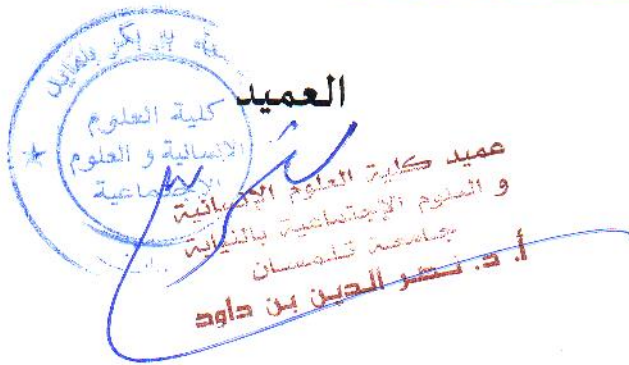 العميد
كلية العلوم
الإنسانية و العلوم
الإجتماعية
عميد كلية العلوم الإنسانية
و العلوم الإجتماعية بالنيابة
جامعة تلمسان
أ. د. نصر الدين بن داود